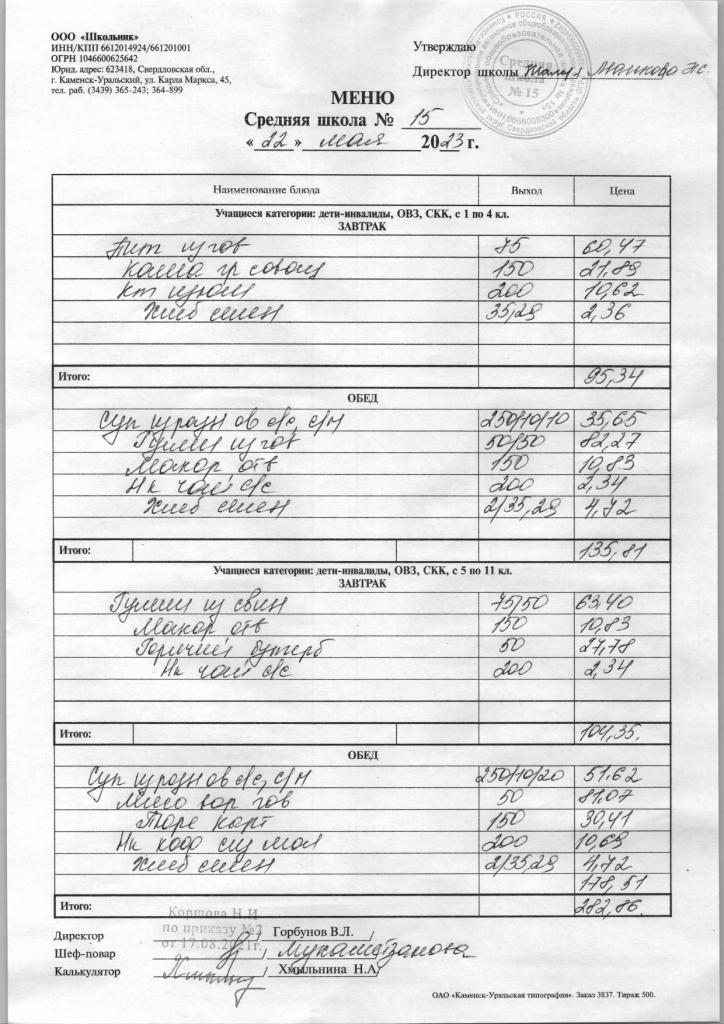 ООО «Школьник»
ИНН/КПП 6612014924/661201001
ОГРН 1046600625642
Юрид. адрес: 623418, Свердловская обл.,
г. Каменск-Уральский, ул. Карла Маркса, 45,
тел. раб. (3439) 365-243; 364-899
Утверждаю
Директор школы
РОССИЯ
Средняя
школа
№ 15
МЕНЮ
Средняя школа № 15
« 22 » мая 2023 г.
Наименование блюда Выход Цена
Учащиеся категории: дети-инвалиды, ОВЗ, СКК, с 1 по 4 кл.
ЗАВТРАК
75 60,47
Каша 150 21,89
200 10,62
Хлеб 35,29 2,36
Итого: 95,34
ОБЕД
Суп с/с, с/м 250/10/10 35,65
Гуляш из гов 50/50 82,27
Макар отв 150 10,83
Нк чай с/с 200 2,34
Хлеб 2/35,29 4,72
Итого: 135,81
Учащиеся категории: дети-инвалиды, ОВЗ, СКК, с 5 по 11 кл.
ЗАВТРАК
Гуляш из свин 75/50 63.40
Макар отв 150 10,83
Горячий бутерб 50 27,78
Нк чай с/с 200 2,34
Итого: 104,35.
ОБЕД
Суп с/с, с/м 250/10/20 51.62
Мясо гов 50 81,07
Пюре карт 150 30,41
Нк кофе мол 200 10,69
Хлеб 2/35,29 4,72
178,51
Итого: 282,86.
Коршова Н.И.
по приказу №2
от 17.08.2021г.
Директор / Горбунов В.Л. /
Шеф-повар /
Калькулятор / Хмыльнина Н.А/
ОАО «Каменск-Уральская типография». Заказ 3837. Тираж 500.